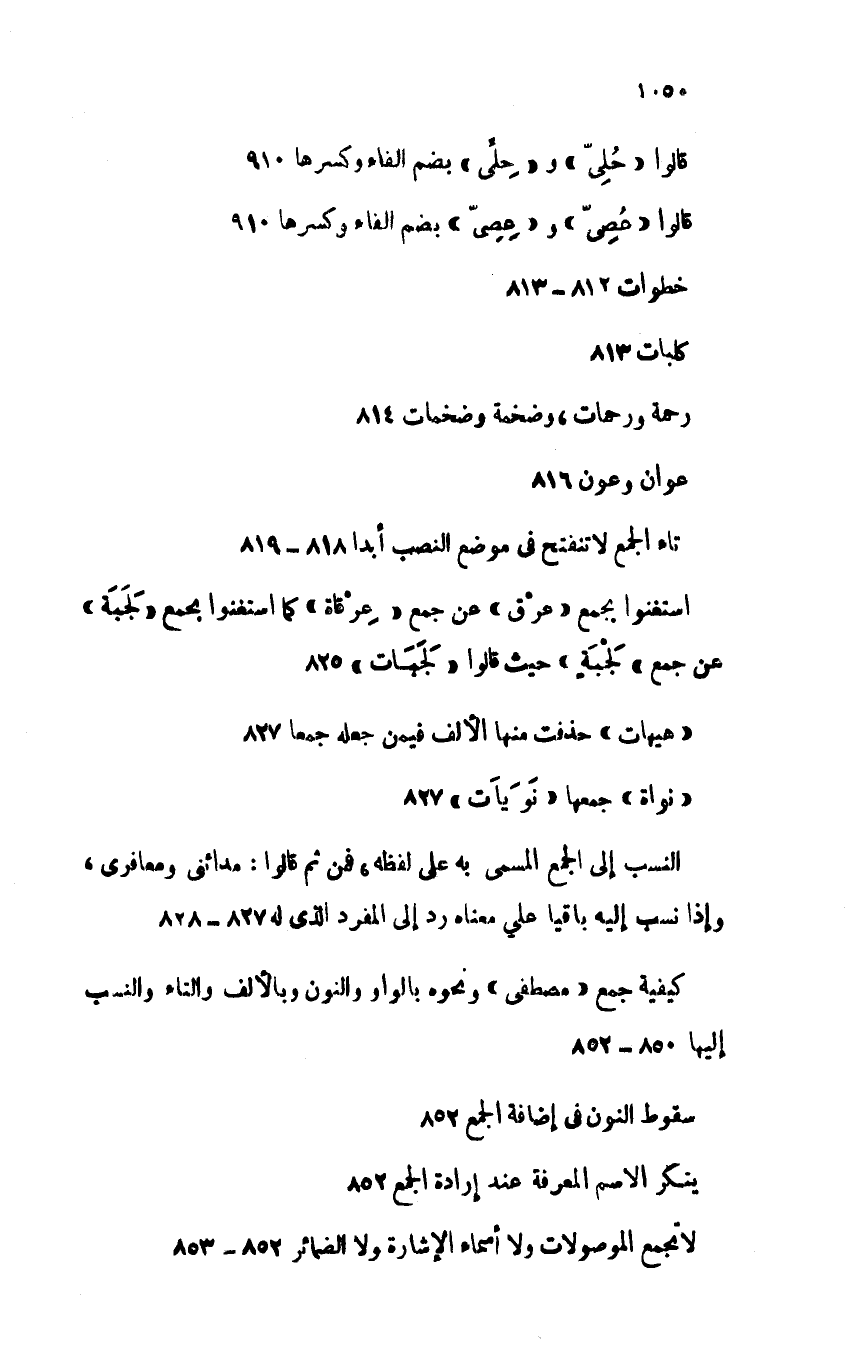 ١٠٥٠
قالوا « حُلِىّ » و « حِلًّى » بضم الفاء وكسرها ٩١٠
قالوا « عُصِىّ » و « عِصِىّ » بضم الفاء وكسرها ٩١٠
خطوات ٨١٢ – ٨١٣
كلبات ٨١٣
رحمة ورحمات ، وضخمة وضخمات ٨١٤
عوان وعون ٨١٦
تاء الجمع لا تنفتح فى موضع النصب أبدا ٨١٨ – ٨١٩
استغنوا بجمع « عرْق » عن جمع « عِرْقاة » كما استغنوا بجمع « لَجَبَة »
عن جمع « لَجْبَةٍ » حيث قالوا « لَجَبَات » ٨٢٥
« هيهات » حذفت منها الألف فيمن جعله جمعا ٨٢٧
« نواة » جمعها « نَوَيَات » ٨٢٧
النسب إلى الجمع المسمى به على لفظه ، فمن ثم قالوا : مدائنى ومعافرى ،
وإذا نسب إليه باقيا علي معناه رد إلى المفرد الذى له ٨٢٧ – ٨٢٨
كيفية جمع « مصطفى » ونحوه بالواو والنون وبالألف والتاء والنسب
إليها ٨٥٠ – ٨٥٢
سقوط النون فى إضافة الجمع ٨٥٢
يتنكر الاسم المعرفة عند إرادة الجمع ٨٥٢
لا تجمع الموصولات ولا أسماء الإشارة ولا الضمائر ٨٥٢ – ٨٥٣